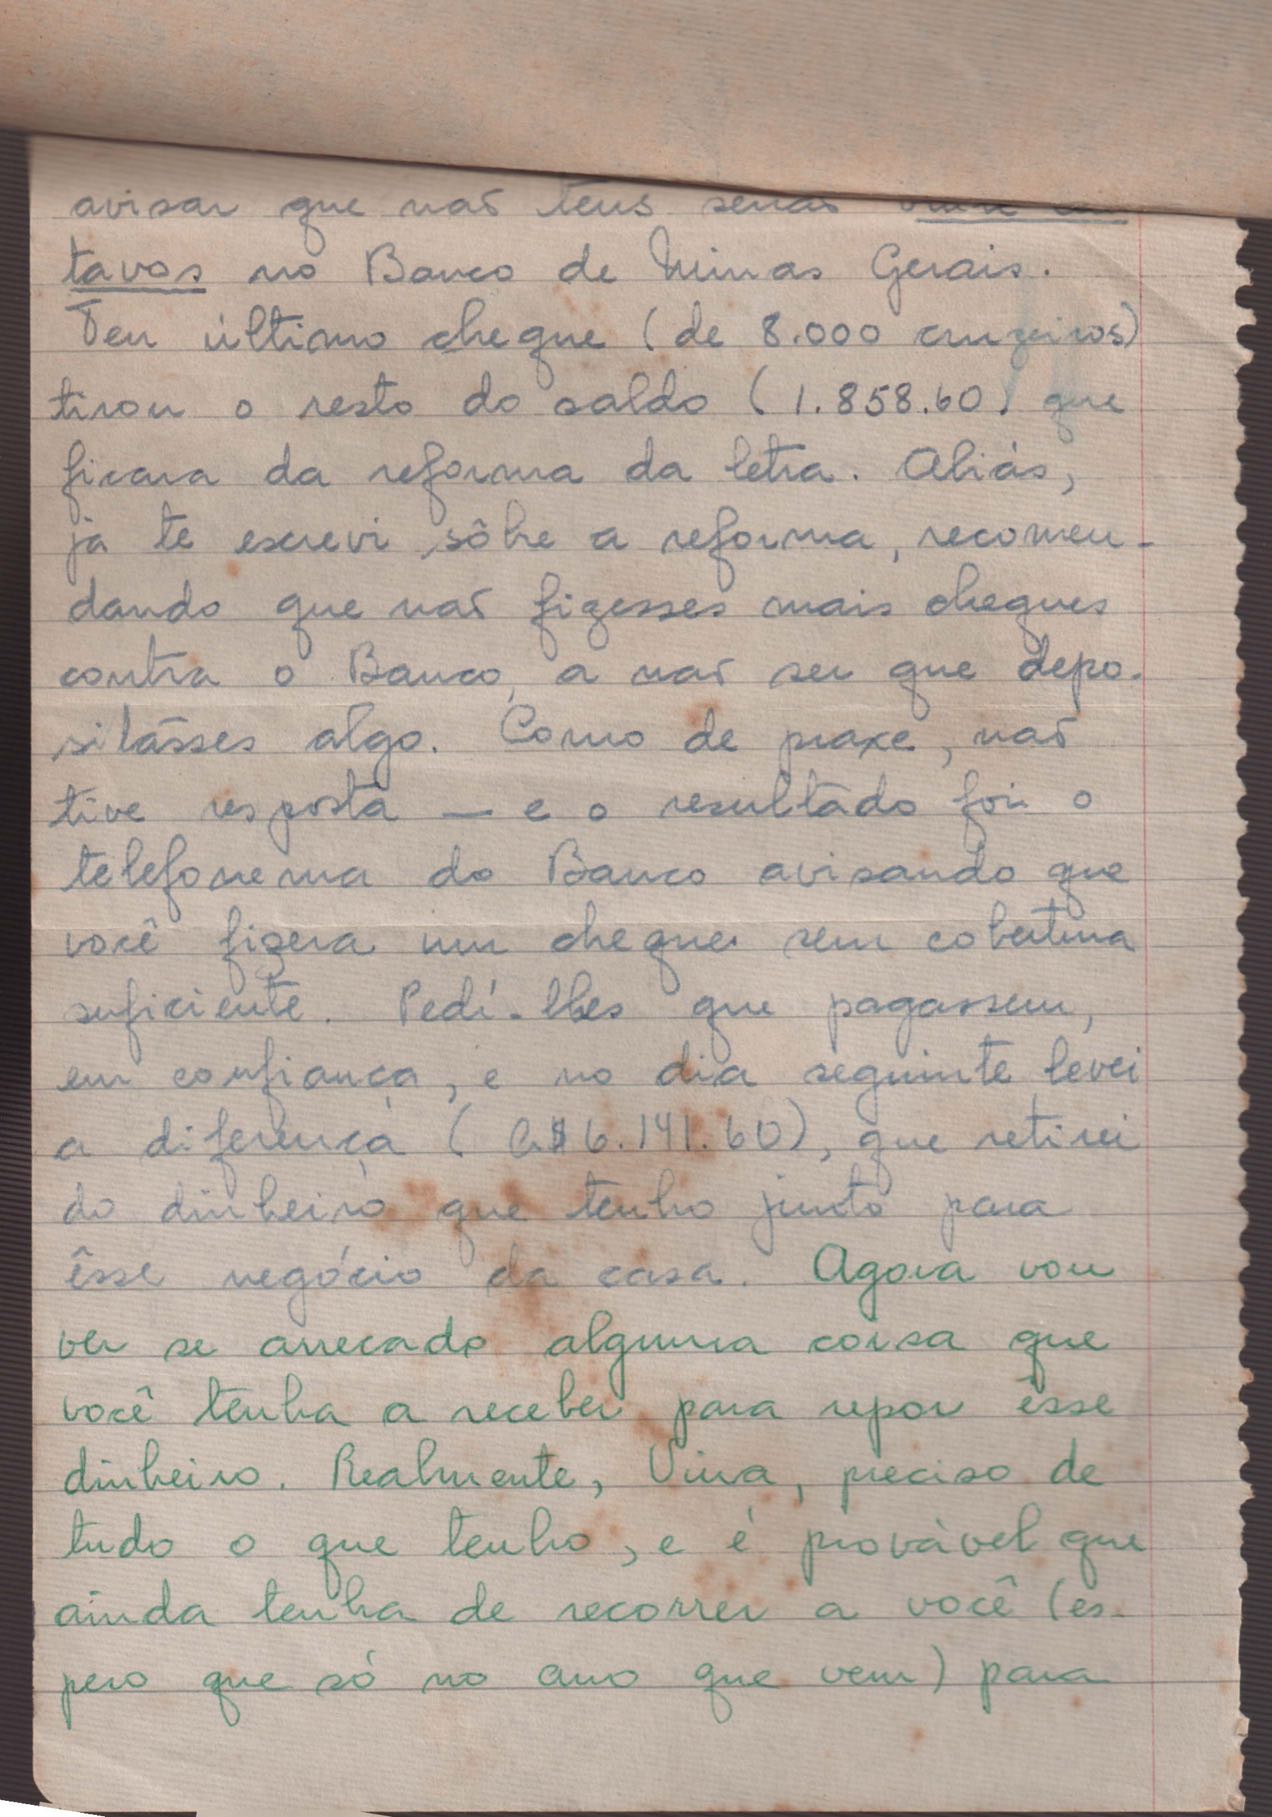 avisar que não tens senão
tavos no Banco de Minas Gerais.
Teu último cheque (de 8.000 cruzeiros)
tirou o resto do saldo (1.858.60) que
ficara da reforma da letra. Aliás,
já te escrevi sôbre a reforma, recomen-
dando que não fizesses mais cheques
contra o Banco, a não ser que depo-
sitásses algo. Como de praxe, não
tive resposta — e o resultado foi o
telefonema do Banco avisando que
você fizera um cheque sem cobertura
suficiente. Pedí-lhes que pagassem,
em confiança, e no dia seguinte levei
a diferença (Cr$ 6.141.60), que retirei
do dinheiro que tenho junto para
êsse negócio da casa. Agora vou
ver se arrecado alguma coisa que
você tenha a receber para repor êsse
dinheiro. Realmente, Vina, preciso de
tudo o que tenho, e é provável que
ainda tenha de recorrer a você (es-
pero que só no ano que vem) para